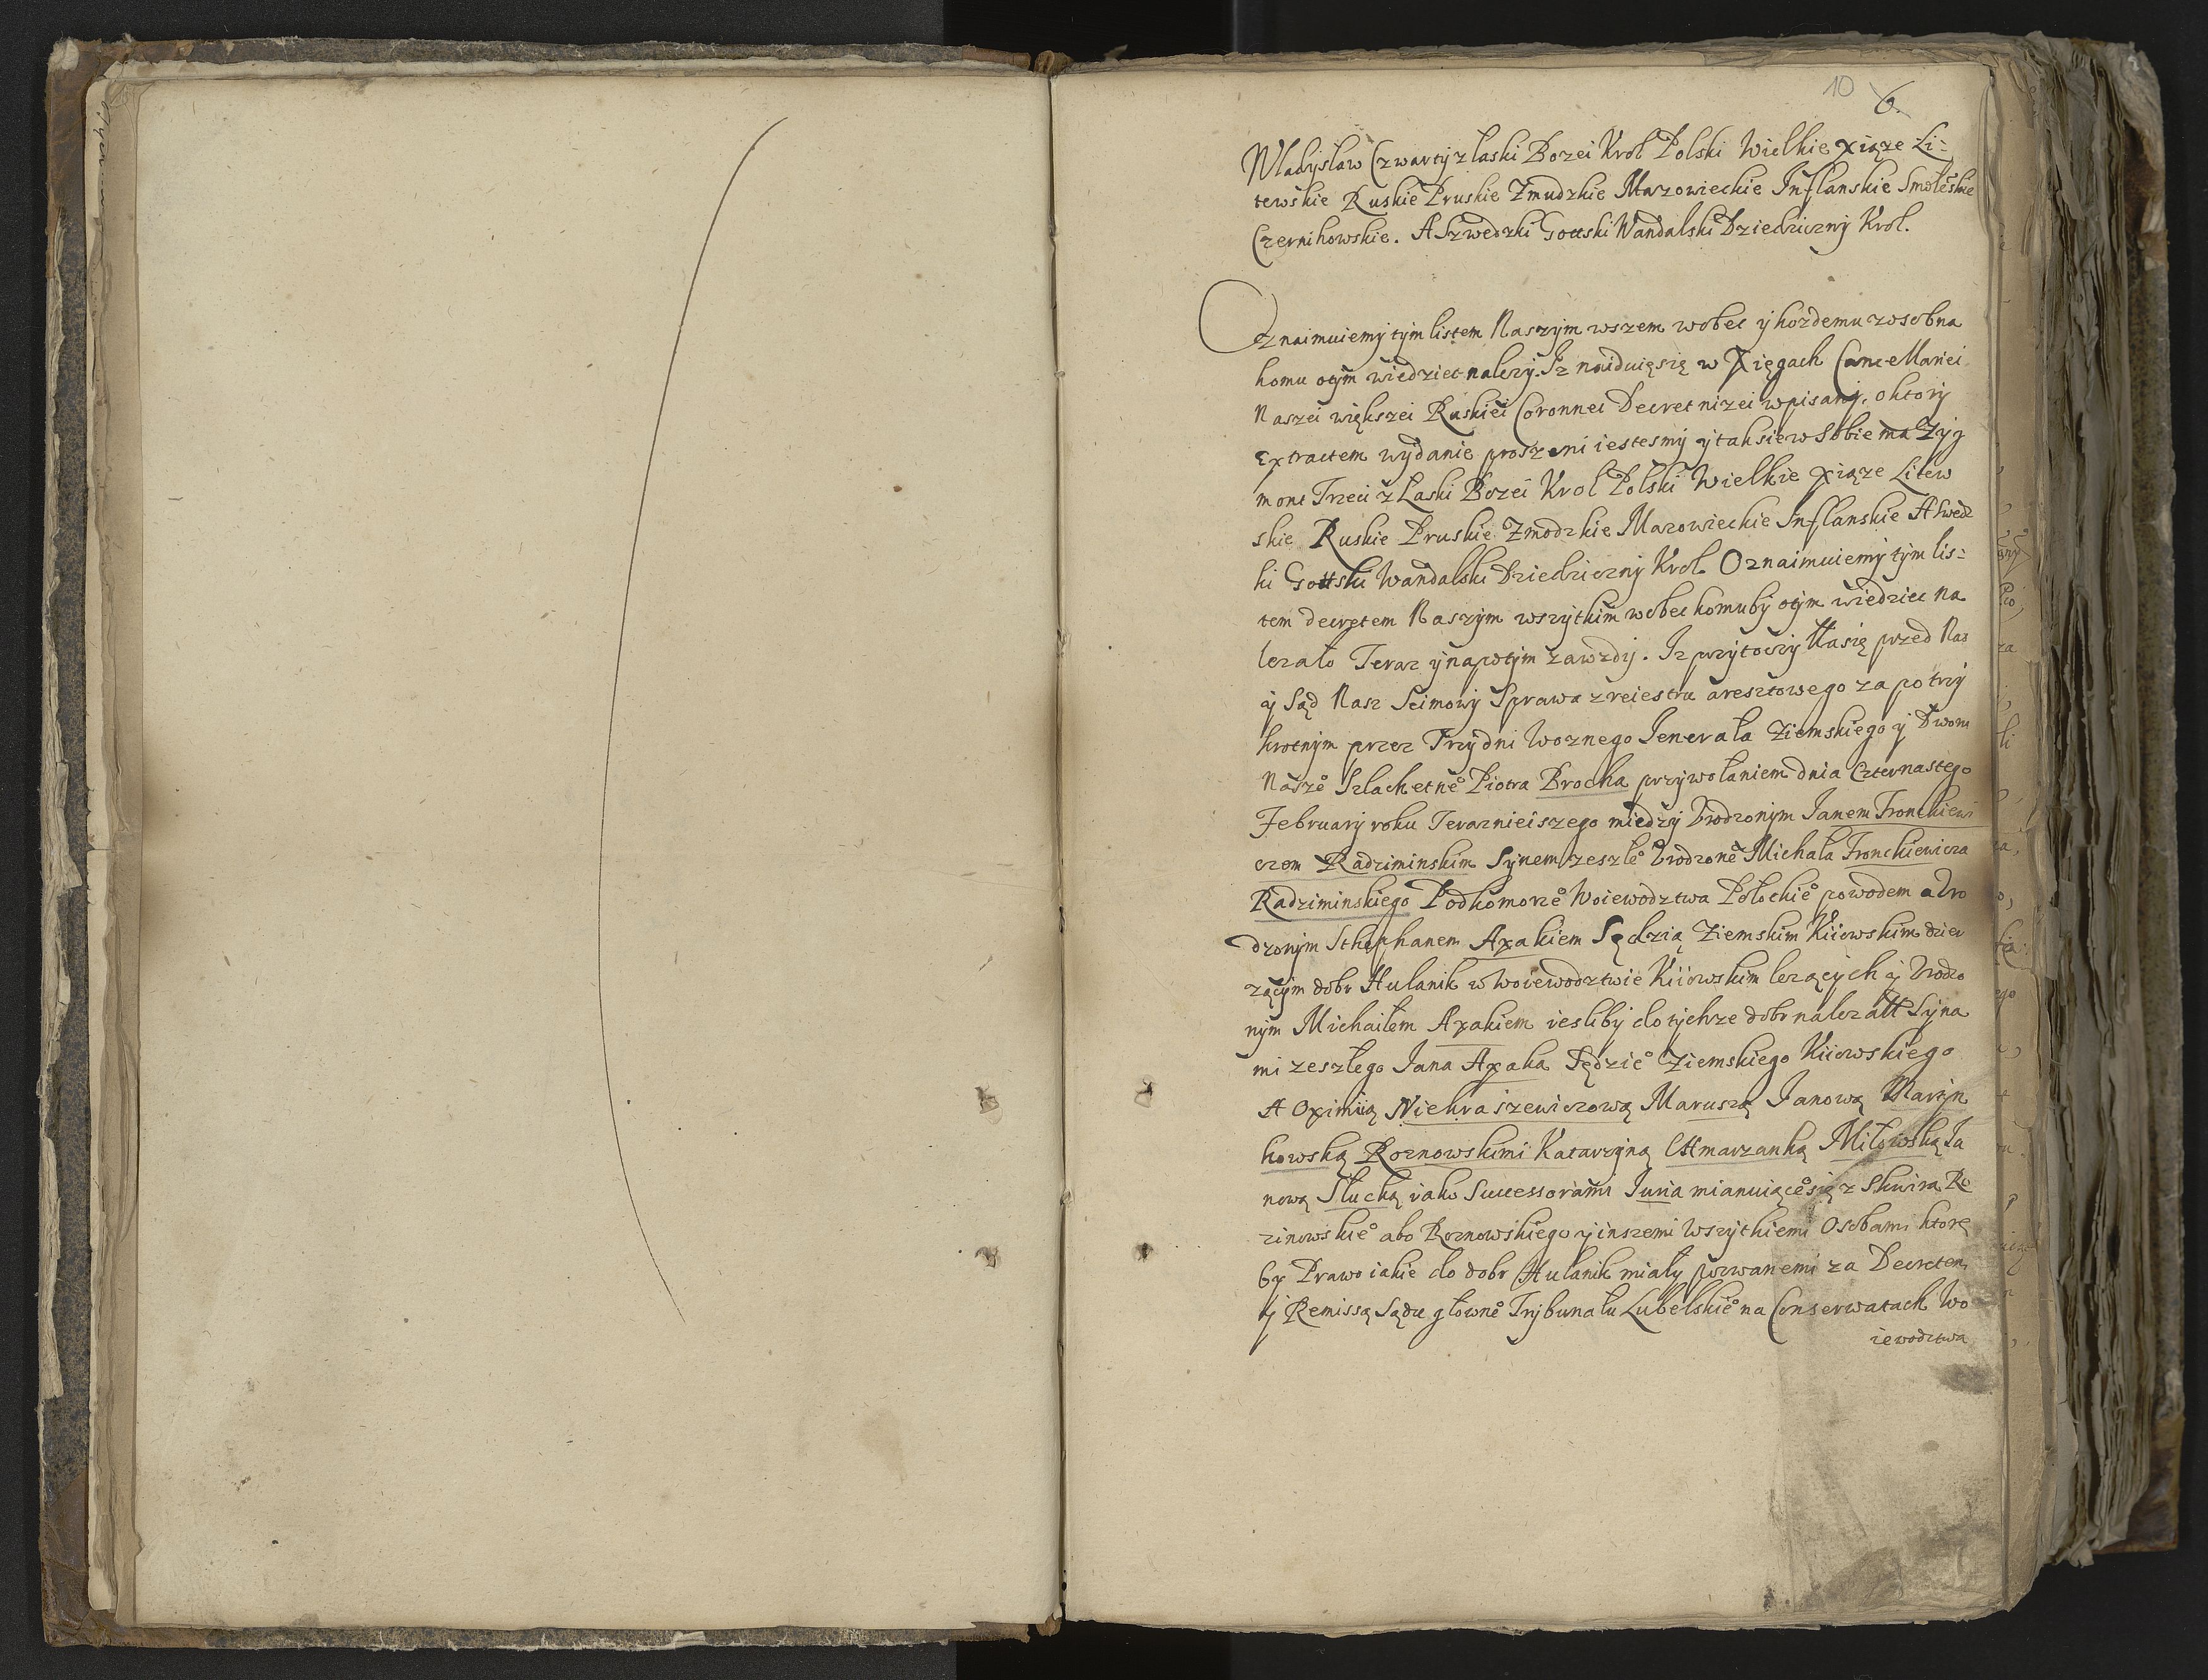 10 6.
Władysław Czwarty z łaski Bozei Krol Polski Wielkie Xiąze Li=
tewskie Ruskie Pruskie Zmudzkie Mazowieckie Inflanskie Smolęskie
Czernihowskie. A Szwedzki Gottski Wandalski Dziedziczny Krol.
Oznaimuiemy tym listem Naszym wszem wobec y kozdemu zosobna
komu otym wiedziec nalezy. Iz naiduię się w Xięgach Cancellariei
Naszei większei Ruskiei Coronnei Decret nizei wpisany, o ktory
Extractem wydanie proszeni iestesmy y tak sie w Sobie ma Zyg
mont Trzeci z Laski Bozei Krol Polski Wielkie Xiąze Litew
skie Ruskie Pruskie Zmodzkie Mazowieckie Inflanskie A Swedz
ki Gottski Wandalski Dziedziczny Krol. Oznaimuiemy tym lis=
tem decretem Naszym wszytkim wobec komuby otym wiedziec na
lezało Teraz y napotym zawzdy. Iz przytoczyłła się przed Nas
y Sąd Nasz Seimowy Sprawa z reiestru aresztowego za po trzy
krotnym przez Trzy dni Woznego Ienerała Ziemskiego y Dworu
Naszeº Szlachetneº Piotra Brocha przywołaniem dnia Czternastego
February roku Teraznieiszego miedzy Vrodzonym Ianem Fronckiewi
czem Radziminskim Synem zeszłeº Vrodzoneº Michała Fronckiewicza
Radziminskiego Podkomorzeº Woiewodztwa Połockieº powodem a Vro
dzonym Sthephanem Axakiem Sędzią Ziemskim Kiiowskim dzier
zącym dobr Hulanik w Woiewodztwie Kiiowskim lezących y Vrodzo
nym Michaiłem Axakiem iesliby do tychze dobr nalezałł Syna
mi zeszłego Iana Axaka Sędzieº Ziemskiego Kiiowskiego
A Oximiią Niekraszewiczową Maruszą Ianową Marzyn
kowską Roznowskimi Katarzyną Chmarzanką Miłowską Ia
nową Słucką iako Successorami Iuria mianuiąceº się z Skwira Ro
zinowskieº abo Roznowskiego y inszemi Wszytkiemi Osobami ktore
by Prawo iakie do dobr Hulanik miały pozwanemi za Decretem
y Remissą Sądu głowneº Trybunału Lubelskieº na Conserwatach Wo
iewodztwa